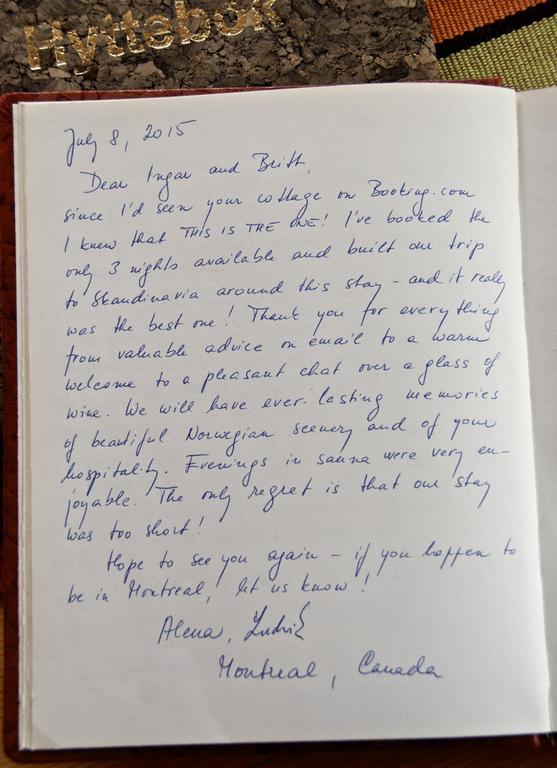 Hyttebok
July 8, 2015
Dear Ingar and Britt,
since I'd seen your cottage on Booking.com
I knew that THIS IS THE ONE! I've booked the
only 3 nights available and built our trip
to Skandinavia around this stay - and it really
was the best one! Thank you for everything
from valuable advice on email to a warm
welcome to a pleasant chat over a glass of
wine. We will have ever-lasting memories
of beautiful Norwegian scenery and of your
hospitality. Evenings in sauna were very en-
joyable. The only regret is that our stay
was too short!
Hope to see you again - if you happen to
be in Montreal, let us know!
Alena, Ludvik
Montreal, Canada